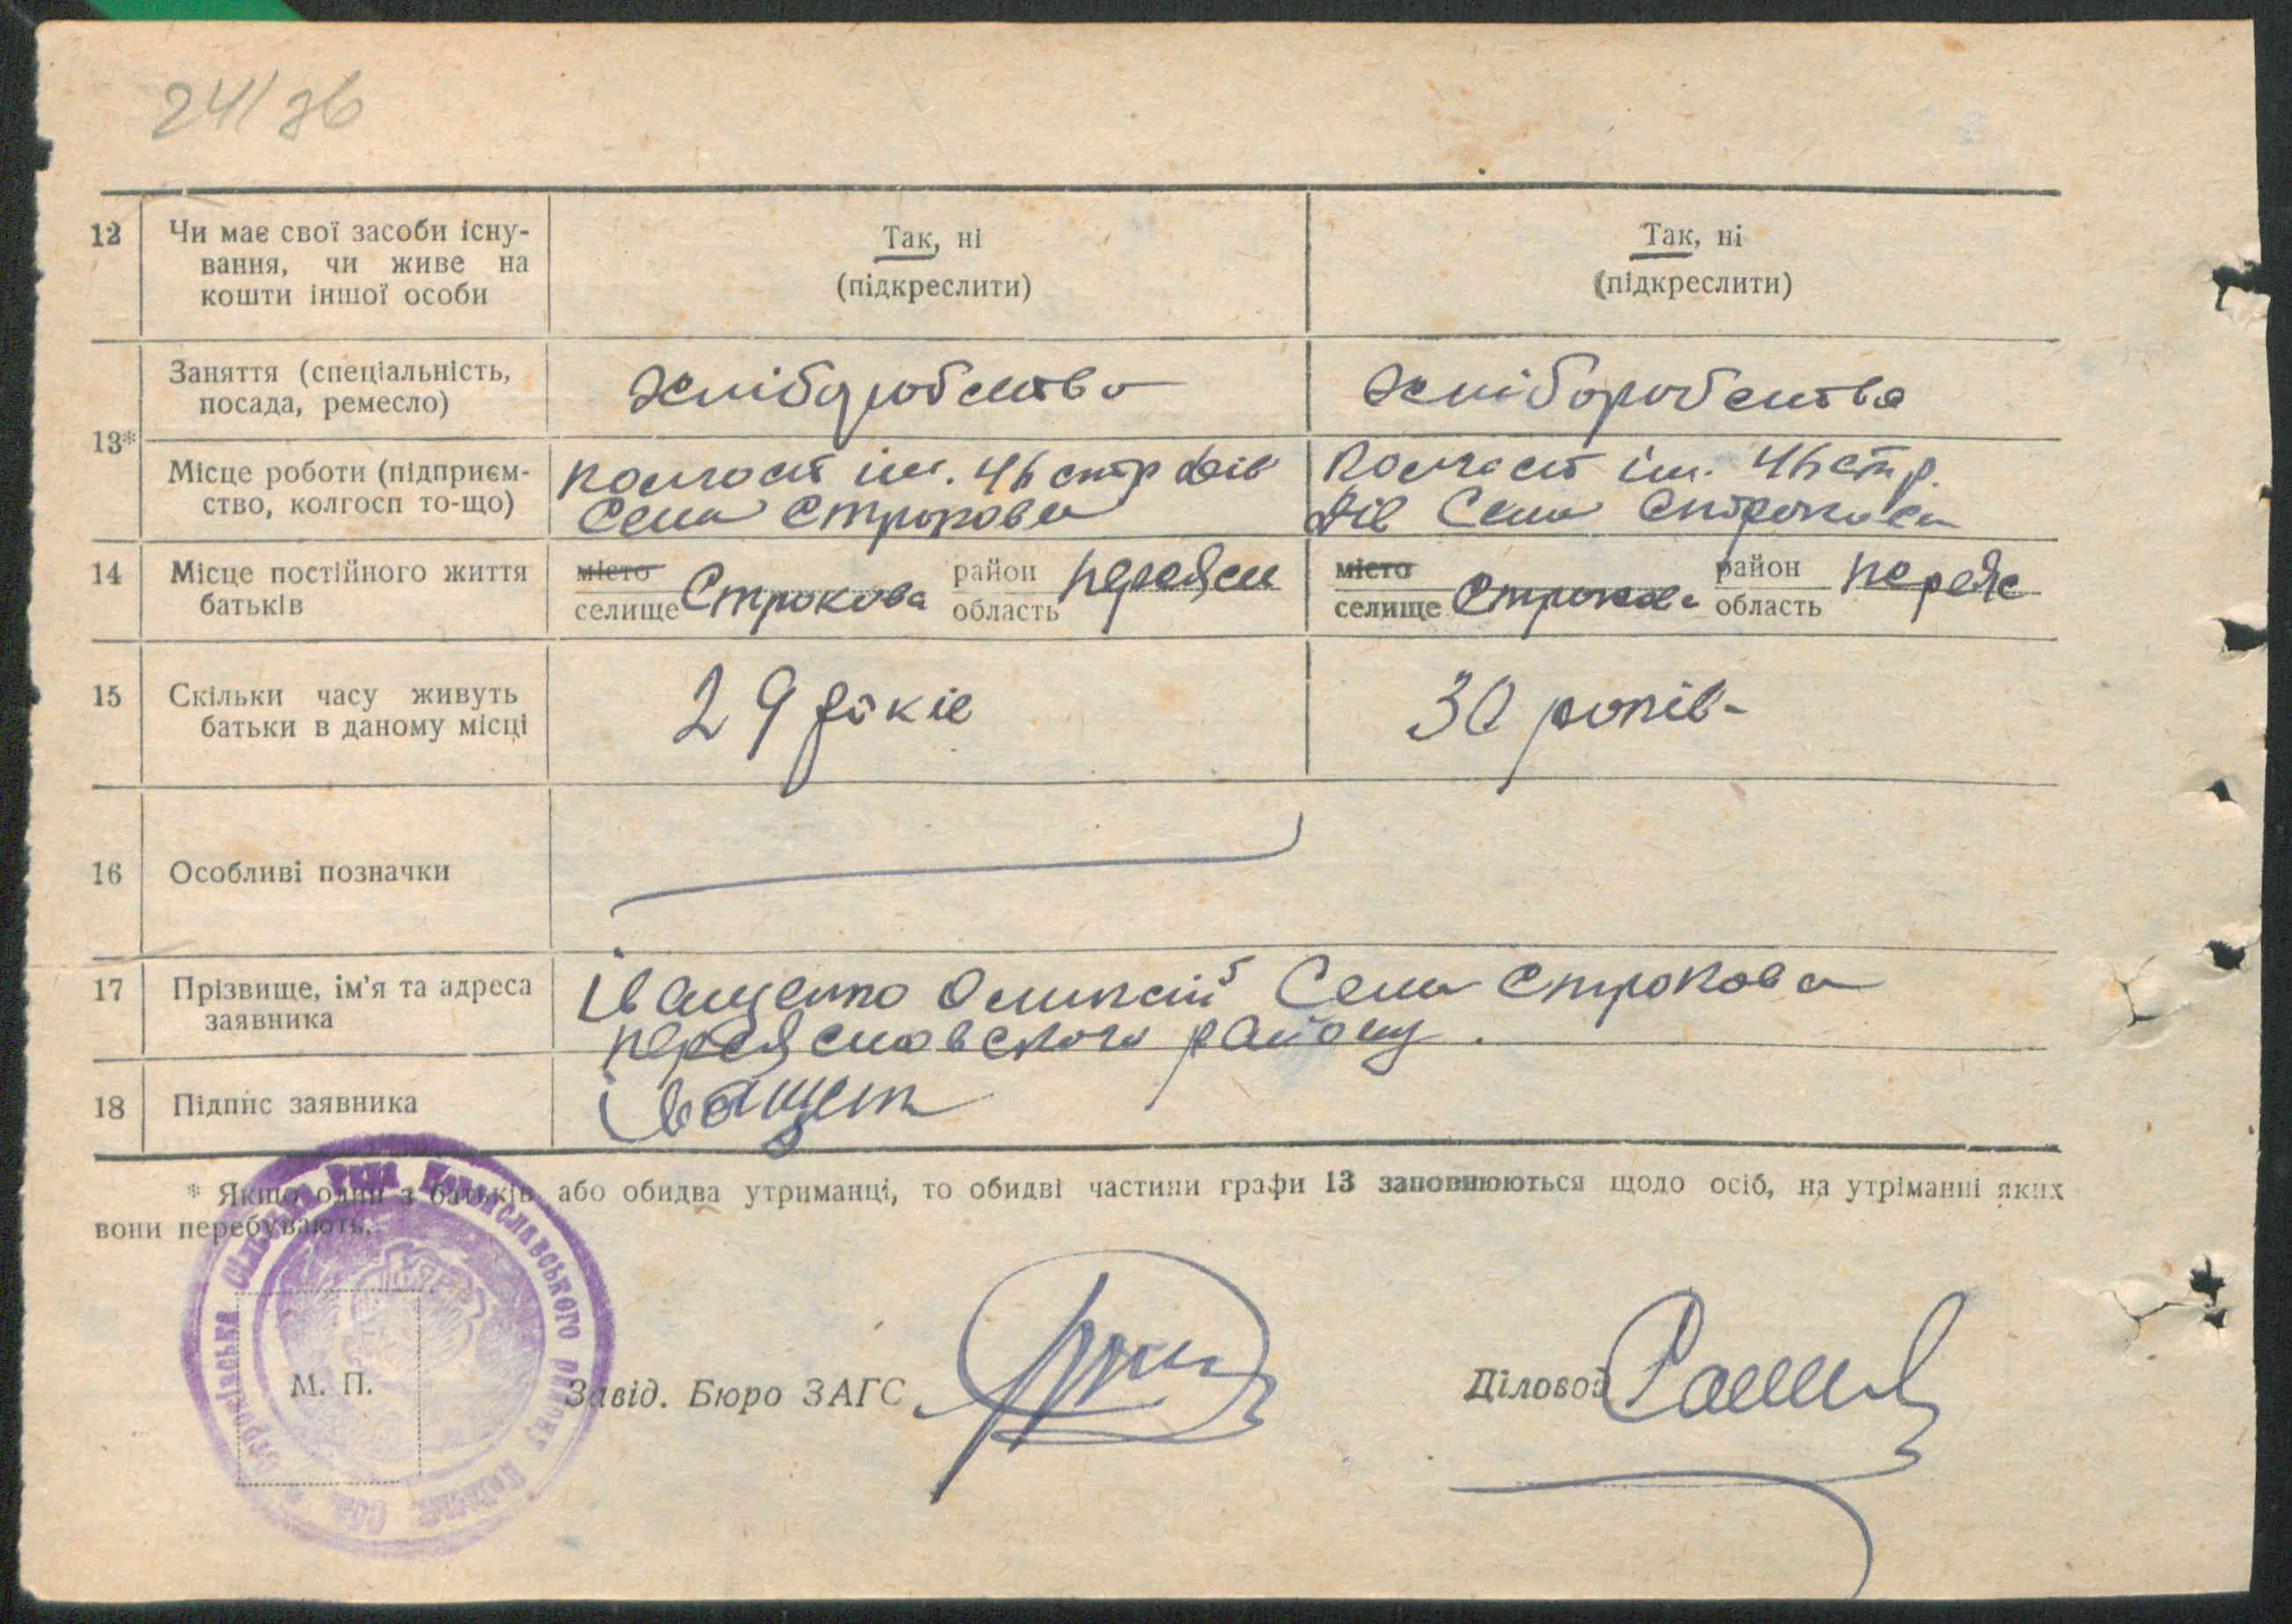 24/36
12 Чи має свої засоби існу-
вання, чи живе на
кошти іншої особи
Так, ні
(підкреслити)
Так, ні
(підкреслити)
13*
Заняття (спеціальність,
посада, ремесло)
хліборобство
хліборобства
Місце роботи (підприєм-
ство, колгосп то-що)
Колгосп ім. 46 стр Див
Села Строкова
Колгосп ім. 46 стр.
Див Села Строкова
14 Місце постійного життя
батьків
місто
селище Строкова район
область Переясл
місто
селище Строкова район
область Переяс
15 Скільки часу живуть
батьки в даному місці
29 років
30 років
16 Особливі позначки
17 Прізвище, ім'я та адреса
заявника
Іващенко Оликсій Села Строкова
Переясловского району.
18 Підпис заявника
Іващен
* Якщо один з батьків або обидва утриманці, то обидві частини графи 13 заповнюються щодо осіб, на утріманні яких
вони перебувають.
Сільська Рада Переяславського району
М. П.
Завід. Бюро ЗАГС
Діловод